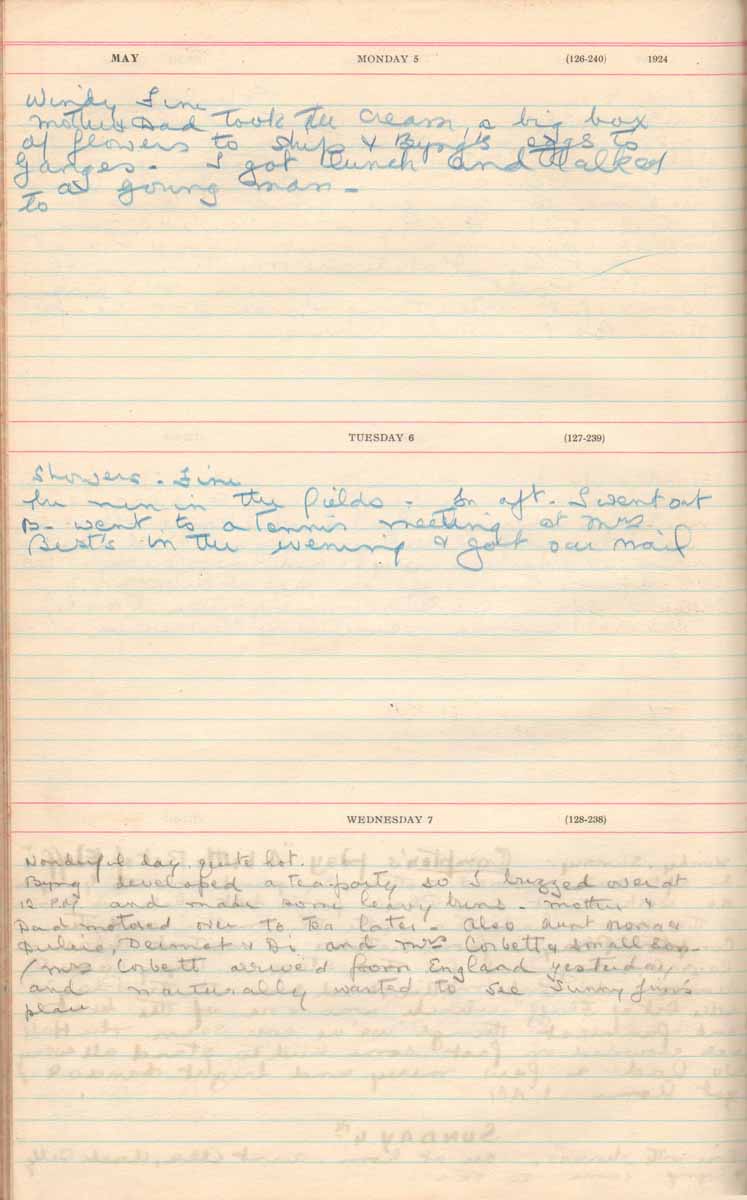 MAY MONDAY 5 (126-240) 1924
Windy Fine
Mother & Dad took the cream a big box
of flowers to ship & Byng's eggs to
Ganges - I got lunch and talked
to a young man -
TUESDAY 6 (127-239)
Showers - Fine
The men in the fields - In aft. I went out
B- went to a tennis meeting at Mrs
Best's in the evening & got our mail
WEDNESDAY 7 (128-238)
Wonderful day quite hot.
Byng developed a tea party so I buzzed over at
12 and made some heavy buns - Mother &
Dad motored over to tea later - Also Aunt
Dermot & Di and Mrs Corbett & small son -
(Mrs Corbett arrived from England yesterday
and naturally wanted to see Sunny Jim's
place